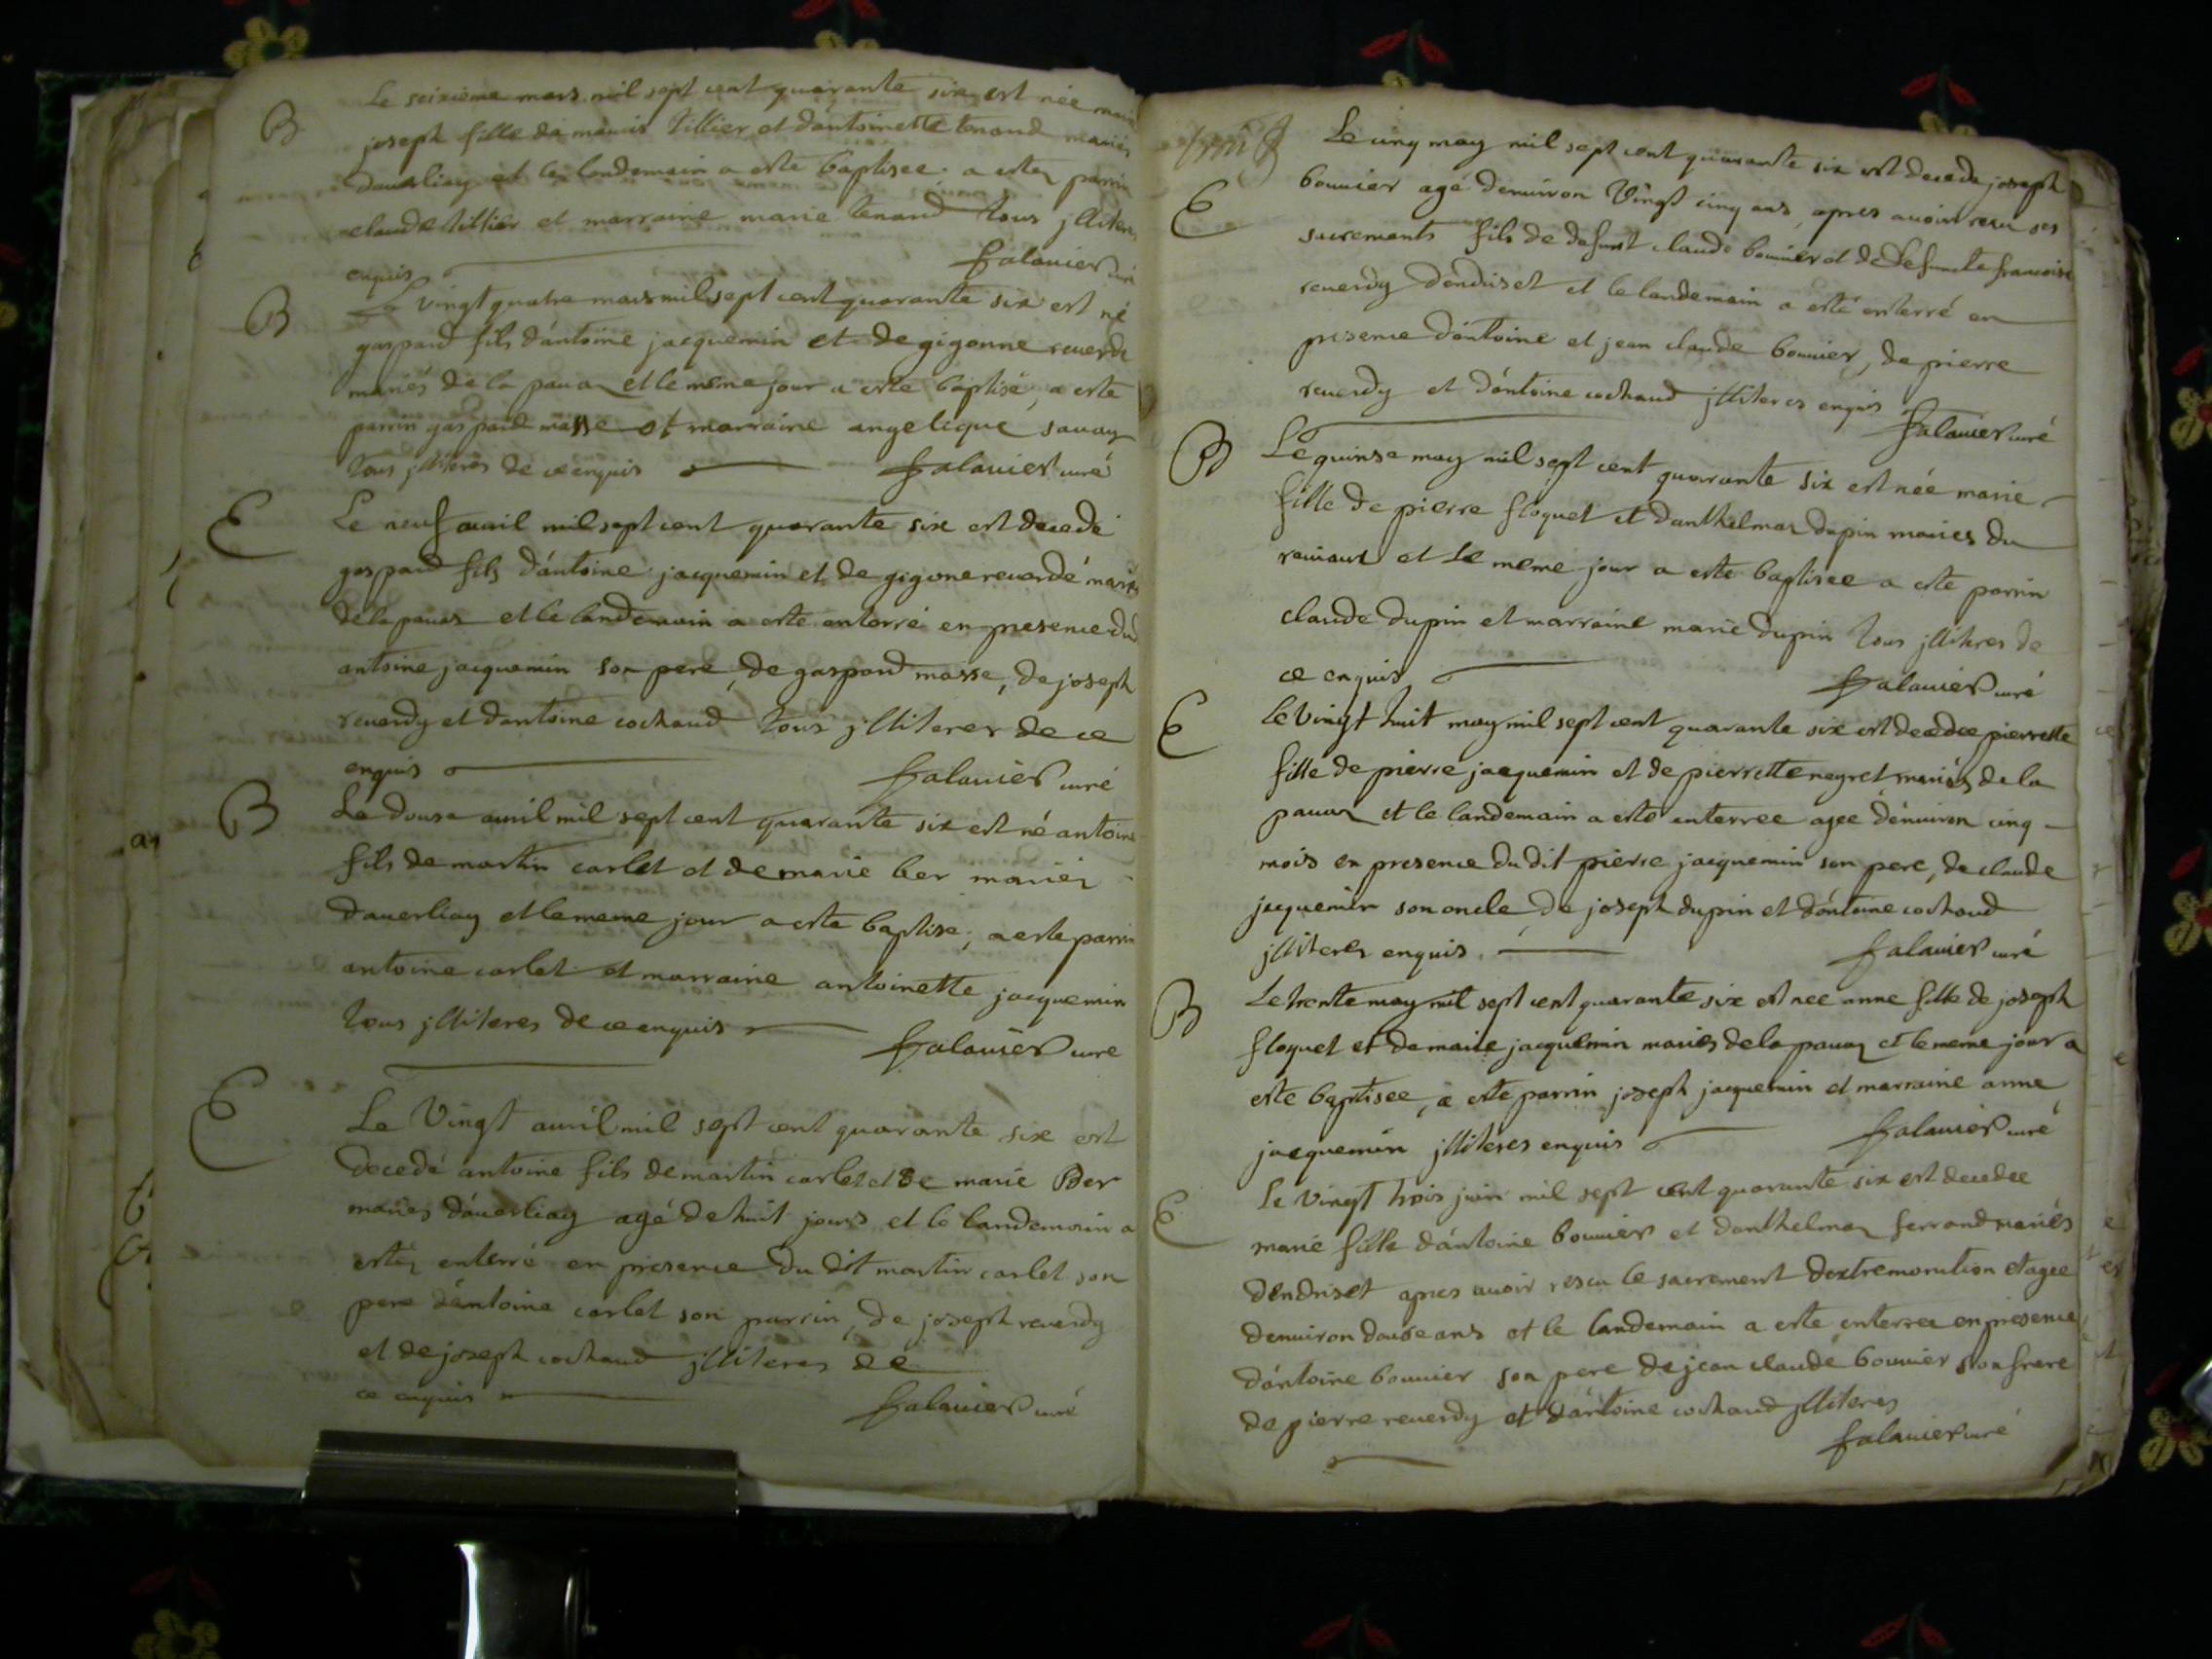 B
Le seixieme mars mil sept cent quarante six est née marie
joseph fille de mauris tillier et d'antoinette tenand mariés
daverliay et le lendemain a este baptisee a estez parrin
claude tillier et marraine marie tenand tous jlliteres
enquis falavier curé
B
Le vingt quatre mars mil sept cent quarante six est né
gaspard fils d'antoine jacquemin et de gigonne reverdi
mariés de la pavaz et le même jour a este baptisé, a este
parrin gaspard masse et marraine angelique savay
tous jlliteres de ce enquis falavier curé
E
Le neuf avril mil sept cent quarante six est decedé
gaspard fils d'antoine jacquemin et de gigone reverdé mariés
de la pavaz et le landemain a este enterré en presence dud
antoine jacquemin son pere, de gaspard masse, de joseph
reverdy et d'antoine cochaud tous jlliteres de ce
enquis falavier curé
B
Le douse avril mil sept cent quarante six est né antoine
fils de martin carlet et de marie ber mariez
daverliay et le meme jour a este baptise, a este parrin
antoine carlet et marraine antoinette jacquemin
tous jlliteres de ce enquis falavier curé
E
Le vingt avril mil sept cent quarante six est
decedé antoine fils de martin carlet et de marie Ber
mariés d'averliay agé de huit jours et le landemain a
estéz enterré en presence du dit martin carlet son
pere d'antoine carlet son parrin, de joseph reverdy
et de joseph cochaud jlliteres de
ce enquis falavier curé
Le cinq may mil sept cent quarante six est decede joseph
E
bouvier agé d'environ vingt cinq ans, apres avoir recu ses
sacrements fils de defunt claude bouvier et de defuncte francoise
reverdy d'endriset et le landemain a esté enterré en
presence d'antoine et jean claude bouvier, de pierre
reverdy et d'antoine cochaud jlliteres enquis
falavier curé
B
Le quinse may mil sept cent quarante six est née marie
fille de pierre floquet et d'anthelmaz dupin mariés du
reviaux et le meme jour a este baptisee a este parrin
claude dupin et marraine marie dupin tous jlliteres de
ce enquis falavier curé
E
Le vingt huit may mil sept cent quarante six est decedee pierrette
fille de pierre jacquemin et de pierrette neyret mariés de la
pavaz et le landemain a este enterree agee d'environ cinq
mois en presence du dit pierre jacquemin son pere, de claude
jacquemin son oncle, de joseph dupin et d'antoine cochaud
jlliteres enquis falavier curé
B
Le trente may mil sept cent quarante six est nee anne fille de joseph
floquet et de marie jacquemin mariés de la pavaz et le meme jour a
este baptisee, a este parrin joseph jacquemin et marraine anne
jacquemin jlliteres enquis falavier curé
E
Le vingt trois juin mil sept cent quarante six est decedee
marie fille d'antoine bouvier et d'anthelmaz ferrand mariés
d'endriset apres avoir resçu le sacrement d'extremonction et agee
d'environ douse ans et le landemain a este enterree en presence
d'antoine bouvier son pere de jean claude bouvier son frere
de pierre reverdy et d'antoine cochaud jlliteres
falavier curé